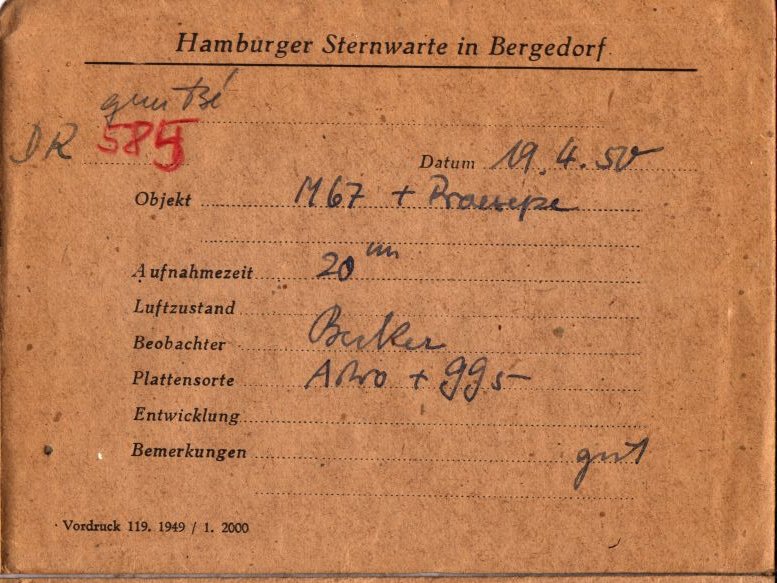 Hamburger Sternwarte in Bergedorf
DR 585
Datum 19.4.50
Objekt M67 + Praesepe
Aufnahmezeit 20 m
Luftzustand
Beobachter Becker
Plattensorte Astro + 995
Entwicklung
Bemerkungen gut
Vordruck 119. 1949 / 1. 2000